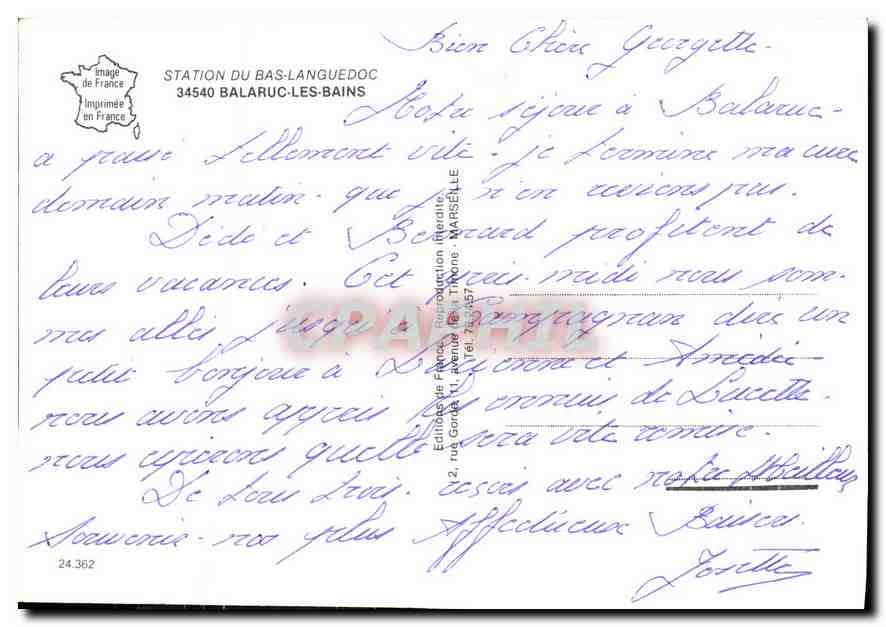 Bien Chère Georgette.
Image
de France
Imprimée
en France
STATION DU BAS-LANGUEDOC
34540 BALARUC-LES-BAINS
Notre séjour à Balaruc-
a passé tellement vite. je termine ma cure
demain matin. que je n'en reviens pas.
Dédé et Bernard profitent de
leurs vacances. Cet après-midi nous som-
mes allés jusqu'à Campagnan dire un
petit bonjour à et Amédée-
nous avons appris les ennuis de Lucette.
nous espérons quelle sera vite remise.
De tous trois. reçois avec notre Meilleur
Souvenir- nos plus Affectueux Baisers.
Josette
24.362
Editions de France - Reproduction interdite
2, rue Gorde, 11, avenue de la Timone - MARSEILLE
Tél. 78.24.57
CPAPHIL